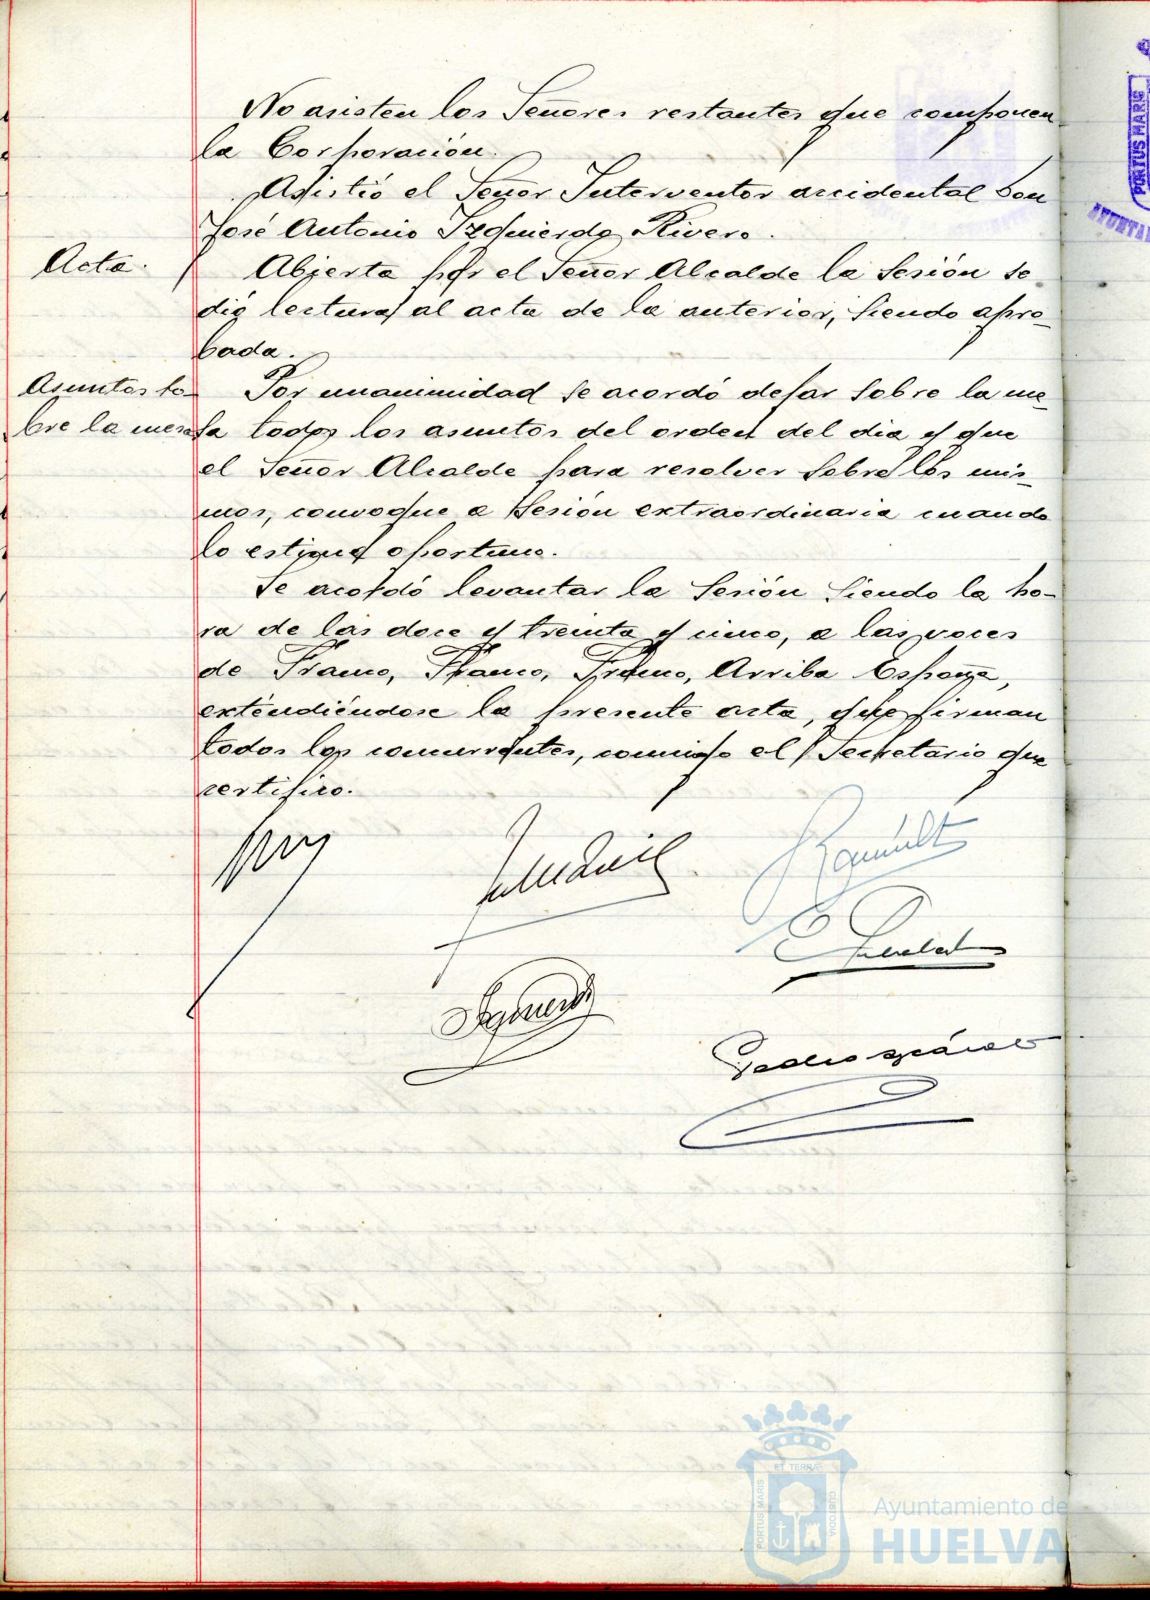 No asisten los Señores restantes que componen
la Corporación.
Asistió el Señor Interventor accidental Don
José Antonio Izquierdo Rivero.
Acta.
Abierta por el Señor Alcalde la sesión se
dió lectura al acta de la anterior, siendo apro-
bada.
Asuntos so-
bre la mesa
Por unanimidad se acordó dejar sobre la me-
sa todos los asuntos del orden del dia y que
el Señor Alcalde para resolver sobre los mis-
mos, convoque a sesión extraordinaria cuando
lo estime oportuno.
Se acordó levantar la sesión siendo la ho-
ra de las doce y treinta y cinco, a las voces
de Franco, Franco, Franco, Arriba España,
extendiéndose la presente acta, que firman
todos los concurrentes, conmigo el Secretario que
certifico.
Pedro
PORTUS MARIS
ET TERRÆ
PORTUS MARIS
CUSTODIA
Ayuntamiento de
HUELVA